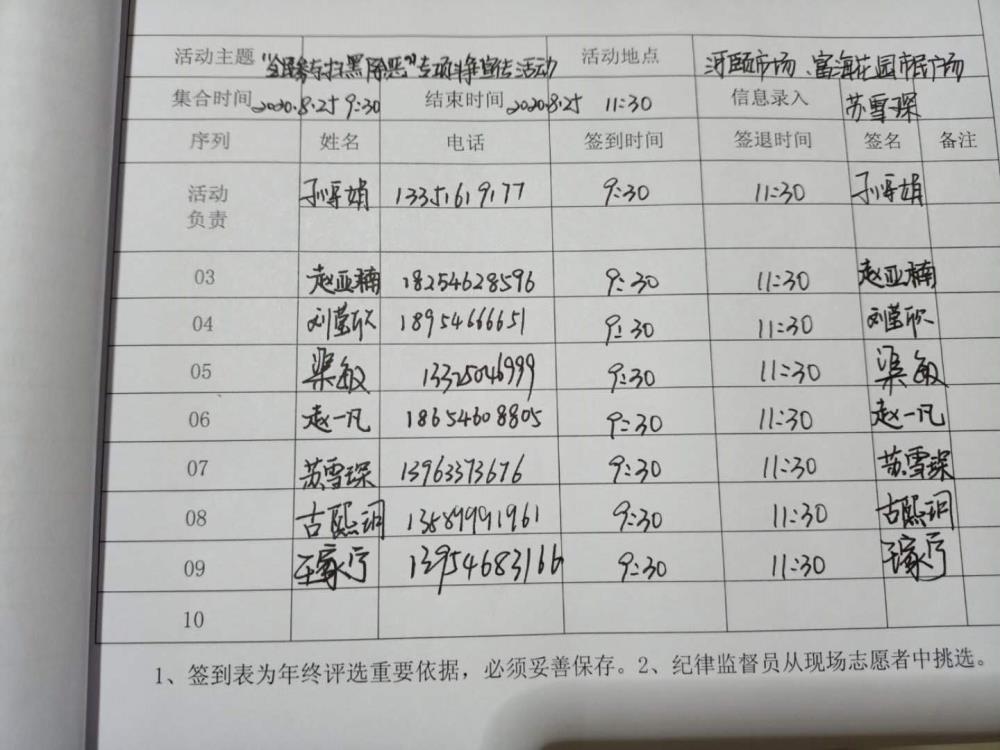 活动主题 “全民参与扫黑除恶”专项斗争宣传活动 活动地点 河颐市场、富海花园市民广场
集合时间 2020.8.25 9:30 结束时间 2020.8.25 11:30 信息录入 苏雪琛
序列 姓名 电话 签到时间 签退时间 签名 备注
活动
负责 13351619177 9:30 11:30
03 赵亚楠 18254628596 9:30 11:30 赵亚楠
04 刘莹欣 18954666651 9:30 11:30 刘莹欣
05 梁敏 13325046999 9:30 11:30 梁敏
06 赵一凡 18654608805 9:30 11:30 赵一凡
07 苏雪琛 13963373676 9:30 11:30 苏雪琛
08 古熙玥 13589991961 9:30 11:30 古熙玥
09 王家宁 13954683166 9:30 11:30 王家宁
10
1、签到表为年终评选重要依据，必须妥善保存。2、纪律监督员从现场志愿者中挑选。